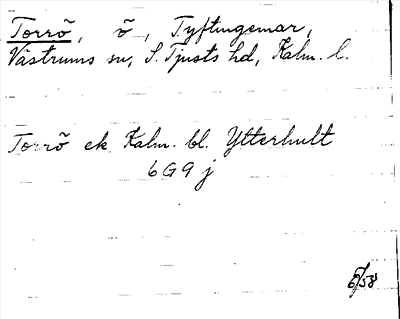 Torrö, ö, Tyftingemar,
Västrums sn, S. Tjusts hd, Kalm. l.
Torrö ek Kalm. bl. Ytterhult
6G9j
6/58